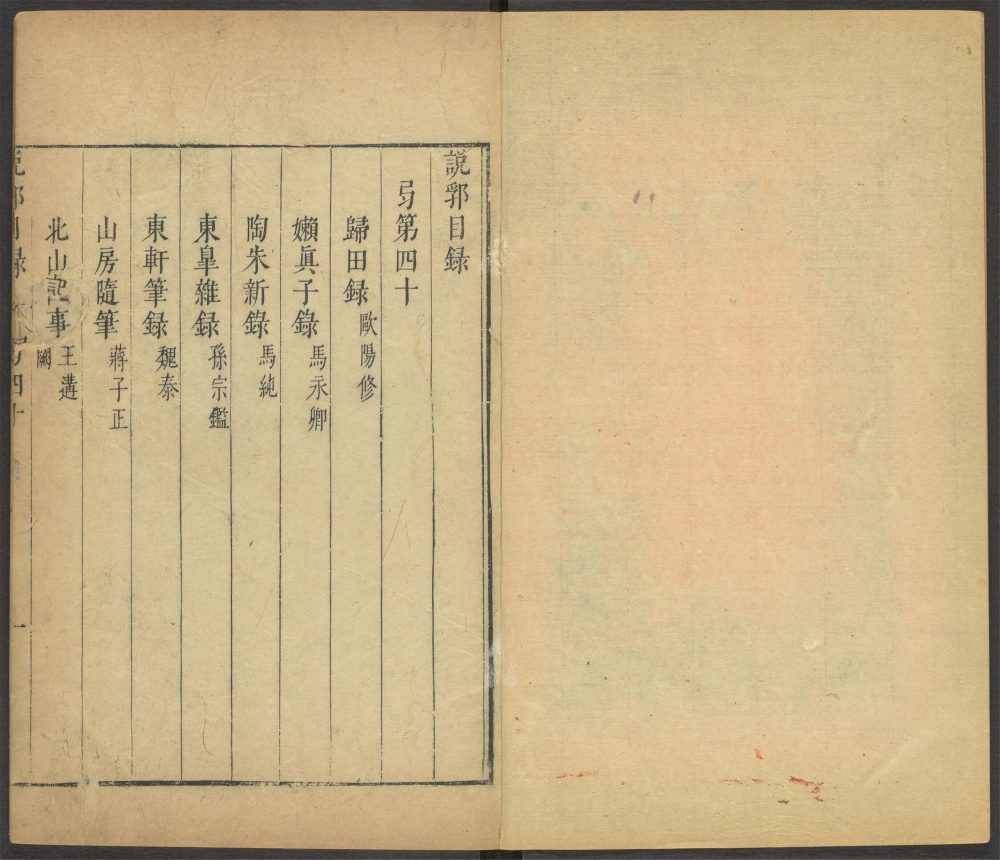 說郛目録
弓第四十
歸田録 歐陽修
嬾眞子錄 馬永卿
陶朱新錄 馬純
東臯雜録 孫宗鑑
東軒筆録 魏泰
山房隨筆 蔣子正
北山記事 王遘 闕
說郛目録 弓四十 一